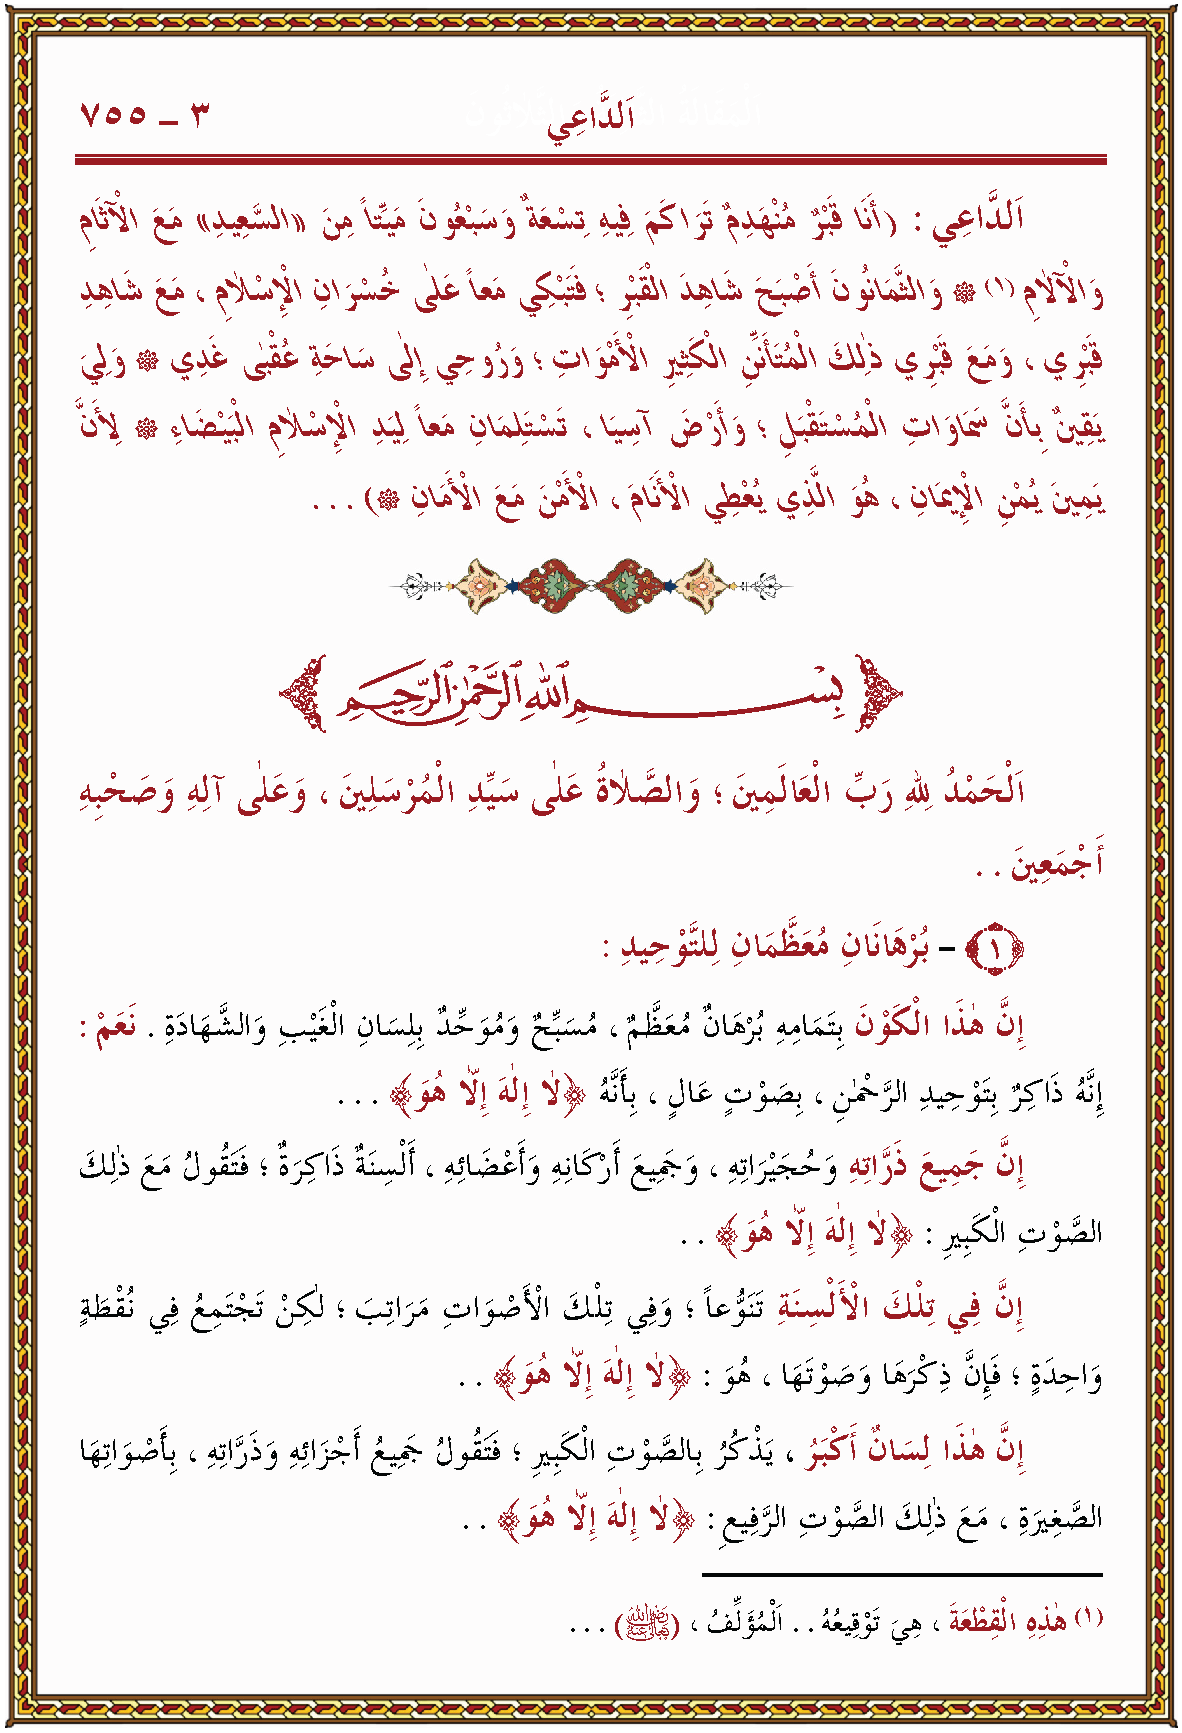 اَلدَّاعِي
٣ ـ ٧٥٥
اَلدَّاعِي : (أَنَا قَبْرٌ مُنْهَدِمٌ تَرَاكَمَ فِيهِ تِسْعَةٌ وَسَبْعُونَ مَيِّتاً مِنَ «السَّعِيدِ» مَعَ الْآثَامِ
وَالْآلَامِ (١) ۞ وَالثَّمَانُونَ أَصْبَحَ شَاهِدَ الْقَبْرِ ؛ فَتَبْكِي مَعاً عَلٰى خُسْرَانِ الْإِسْلَامِ ، مَعَ شَاهِدِ
قَبْرِي ، وَمَعَ قَبْرِي ذٰلِكَ الْمُتَأَنِّنِ الْكَثِيرِ الْأَمْوَاتِ ؛ وَرُوحِي إِلٰى سَاحَةِ عُقْبٰى غَدِي ۞ وَلِيَ
يَقِينٌ بِأَنَّ سَمَاوَاتِ الْمُسْتَقْبَلِ ؛ وَأَرْضَ آسِيَا ، تَسْتَلِمَانِ مَعاً لِيَدِ الْإِسْلَامِ الْبَيْضَاءِ ۞ لِأَنَّ
يَمِينَ يُمْنِ الْإِيمَانِ ، هُوَ الَّذِي يُعْطِي الْأَنَامَ ، الْأَمْنَ مَعَ الْأَمَانِ ۞) . . .
بِسْمِ اللّٰهِ الرَّحْمٰنِ الرَّحِيمِ
اَلْحَمْدُ لِلّٰهِ رَبِّ الْعَالَمِينَ ؛ وَالصَّلَاةُ عَلٰى سَيِّدِ الْمُرْسَلِينَ ، وَعَلٰى آلِهِ وَصَحْبِهِ
أَجْمَعِينَ . .
﴿١﴾ – بُرْهَانَانِ مُعَظَّمَانِ لِلتَّوْحِيدِ :
إِنَّ هٰذَا الْكَوْنَ بِتَمَامِهِ بُرْهَانٌ مُعَظَّمٌ ، مُسَبِّحٌ وَمُوَحِّدٌ بِلِسَانِ الْغَيْبِ وَالشَّهَادَةِ . نَعَمْ :
إِنَّهُ ذَاكِرٌ بِتَوْحِيدِ الرَّحْمٰنِ ، بِصَوْتٍ عَالٍ ، بِأَنَّهُ ﴿لَا إِلٰهَ إِلَّا هُوَ﴾ . . .
إِنَّ جَمِيعَ ذَرَّاتِهِ وَحُجَيْرَاتِهِ ، وَجَمِيعَ أَرْكَانِهِ وَأَعْضَائِهِ ، أَلْسِنَةٌ ذَاكِرَةٌ ؛ فَتَقُولُ مَعَ ذٰلِكَ
الصَّوْتِ الْكَبِيرِ : ﴿لَا إِلٰهَ إِلَّا هُوَ﴾ . .
إِنَّ فِي تِلْكَ الْأَلْسِنَةِ تَنَوُّعاً ؛ وَفِي تِلْكَ الْأَصْوَاتِ مَرَاتِبَ ؛ لٰكِنْ تَجْتَمِعُ فِي نُقْطَةٍ
وَاحِدَةٍ ؛ فَإِنَّ ذِكْرَهَا وَصَوْتَهَا ، هُوَ : ﴿لَا إِلٰهَ إِلَّا هُوَ﴾ . .
إِنَّ هٰذَا لِسَانٌ أَكْبَرُ ، يَذْكُرُ بِالصَّوْتِ الْكَبِيرِ ؛ فَتَقُولُ جَمِيعُ أَجْزَائِهِ وَذَرَّاتِهِ ، بِأَصْوَاتِهَا
الصَّغِيرَةِ ، مَعَ ذٰلِكَ الصَّوْتِ الرَّفِيعِ : ﴿لَا إِلٰهَ إِلَّا هُوَ﴾ . .
(١) هٰذِهِ الْقِطْعَةَ ، هِيَ تَوْقِيعُهُ . . اَلْمُؤَلِّفُ ، (رَضِيَ اللّٰهُ تَعَالٰى عَنْهُ) . . .